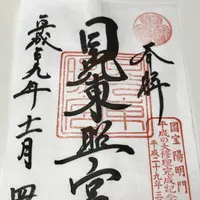 奉拝
國寶 陽明門
平成の大修理完成記念
平成二十九年三
日光東照宮
平成廿九年十一月四